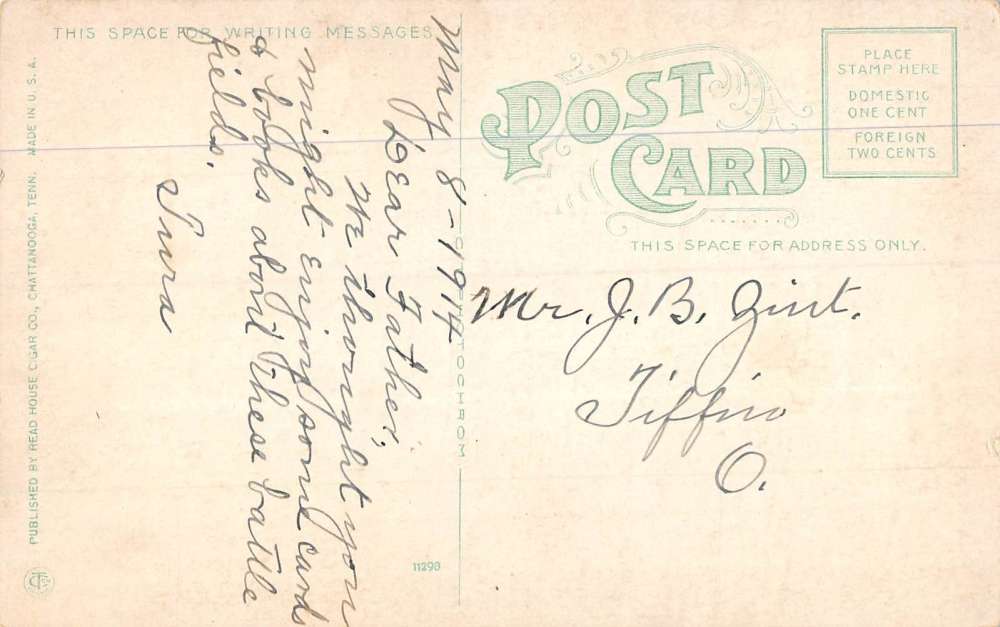 THIS SPACE FOR WRITING MESSAGES
May 8-1914
Dear Father,
We thought you
might enjoy some cards
& books about these battle
fields.
PUBLISHED BY READ HOUSE CIGAR CO., CHATTANOOGA, TENN. MADE IN U. S. A.
11298
POST
CARD
PLACE
STAMP HERE
DOMESTIC
ONE CENT
FOREIGN
TWO CENTS
THIS SPACE FOR ADDRESS ONLY.
Mr. J. B. Zint.
Tiffin
O.